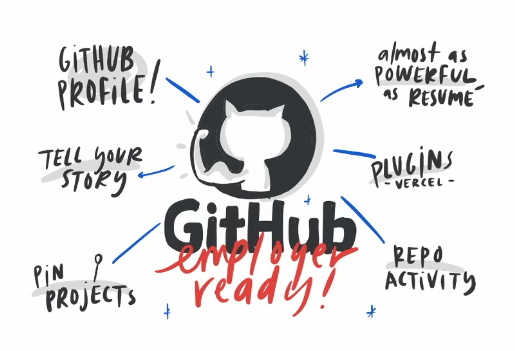 GitHUB
PROFiLE!
almost as
POWERFUL
as RESUME
TELL YOUR
STORY
PLUGiNS
-VERCEL-
GitHub
employer
ready!
PiN
PROJECTS
REPO
ACTiViTY